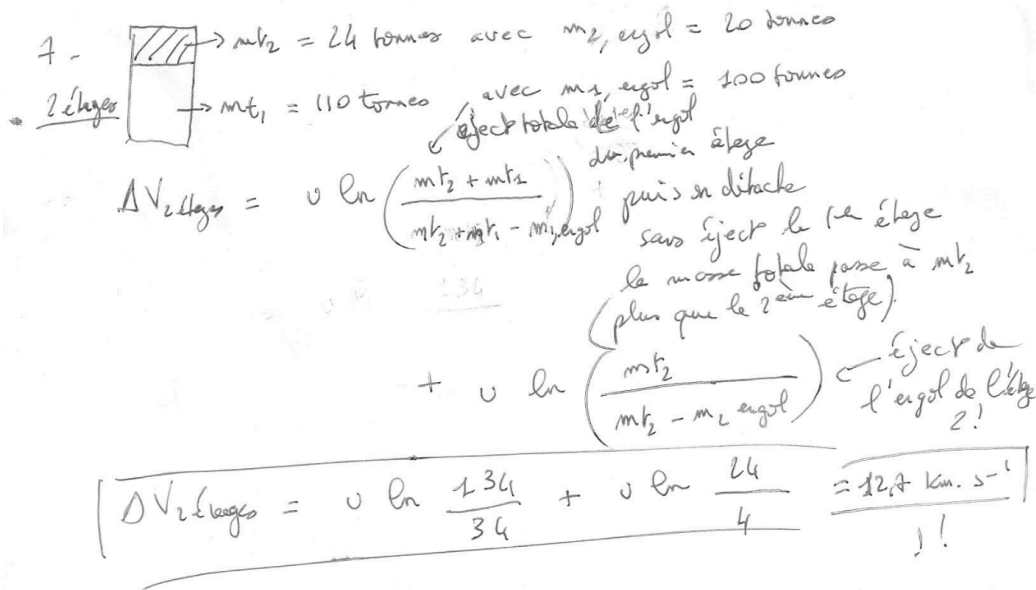 7 - → mt₂ = 24 tonnes avec m₂, ergol = 20 tonnes
• 2 étages → mt₁ = 110 tonnes avec m₁, ergol = 100 tonnes
éject totale de l'ergol
du premier étage
ΔV₂ étages = υ ln ( (mt₂ + mt₁) / (mt₂ + mt₁ - m₁, ergol) ) puis on détache
sans éject le 1er étage
la masse totale passe à mt₂
(plus que le 2ème étage).
+ υ ln ( mt₂ / (mt₂ - m₂ ergol) ) ← éject de
l'ergol de l'étage
2!
ΔV₂ étages = υ ln 134/34 + υ ln 24/4 = 12,7 km. s⁻¹
!!